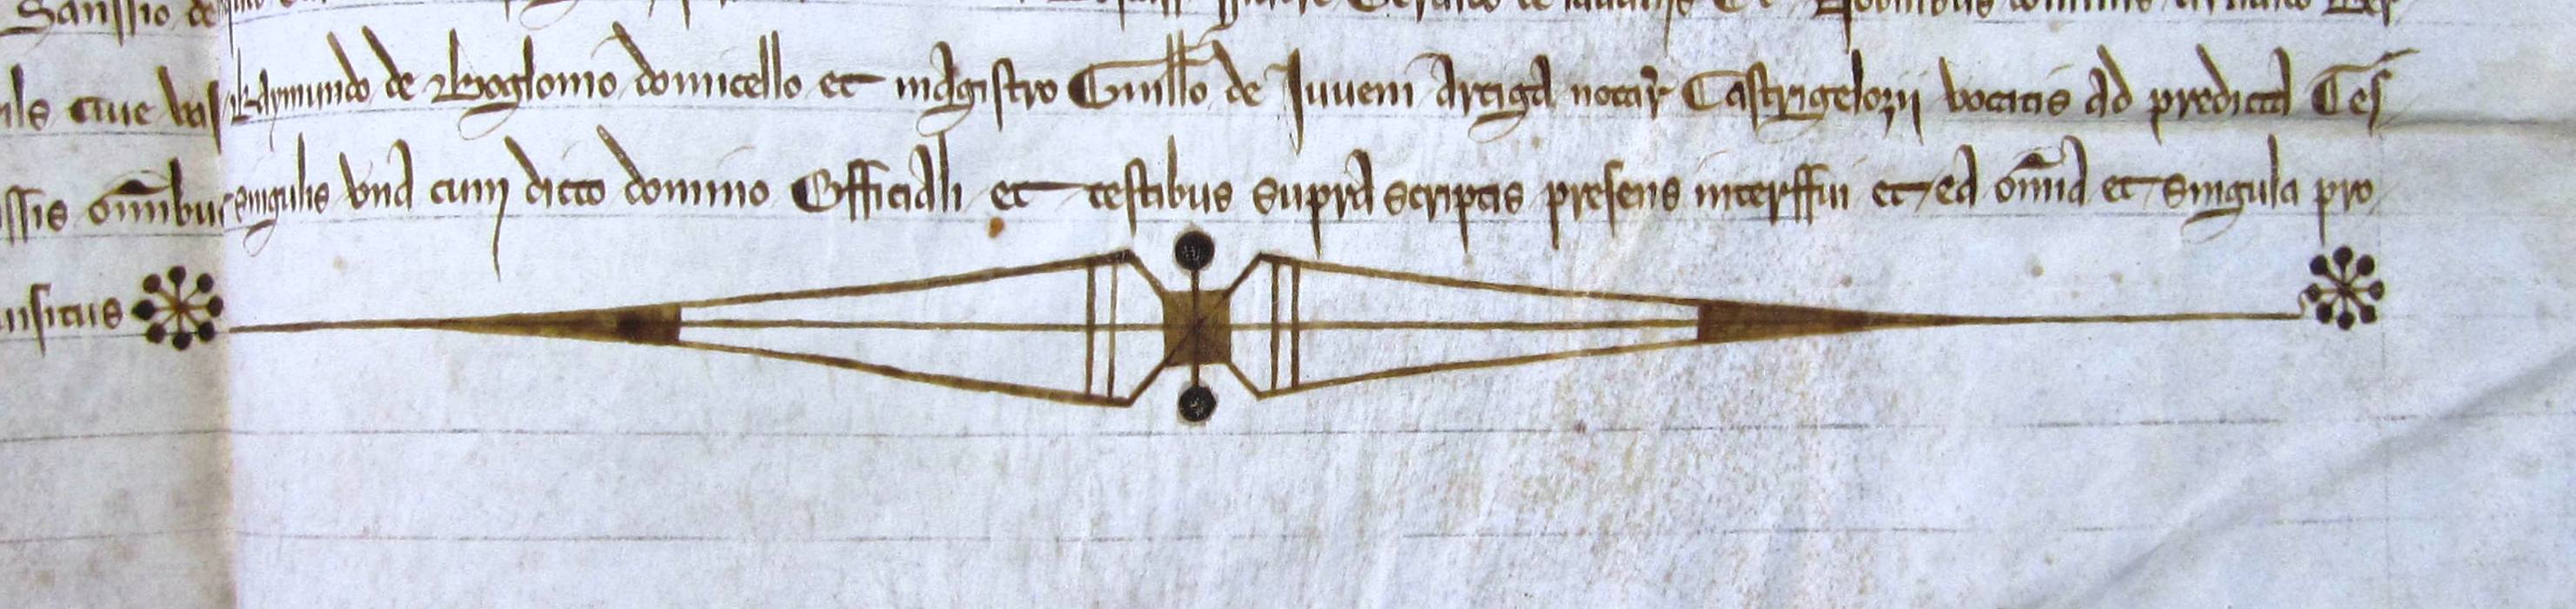 Sanssio de
ils cive vas Raymundo de Boglonio domicello et magistro Guillo de Juveni Artiga notar Castrigelozii vocatis ad predicta Tes
ssis omibus singulis una cum dicto domino Officiali et testibus supra scriptis presens interffui et ea omia et singula pro
nsitus